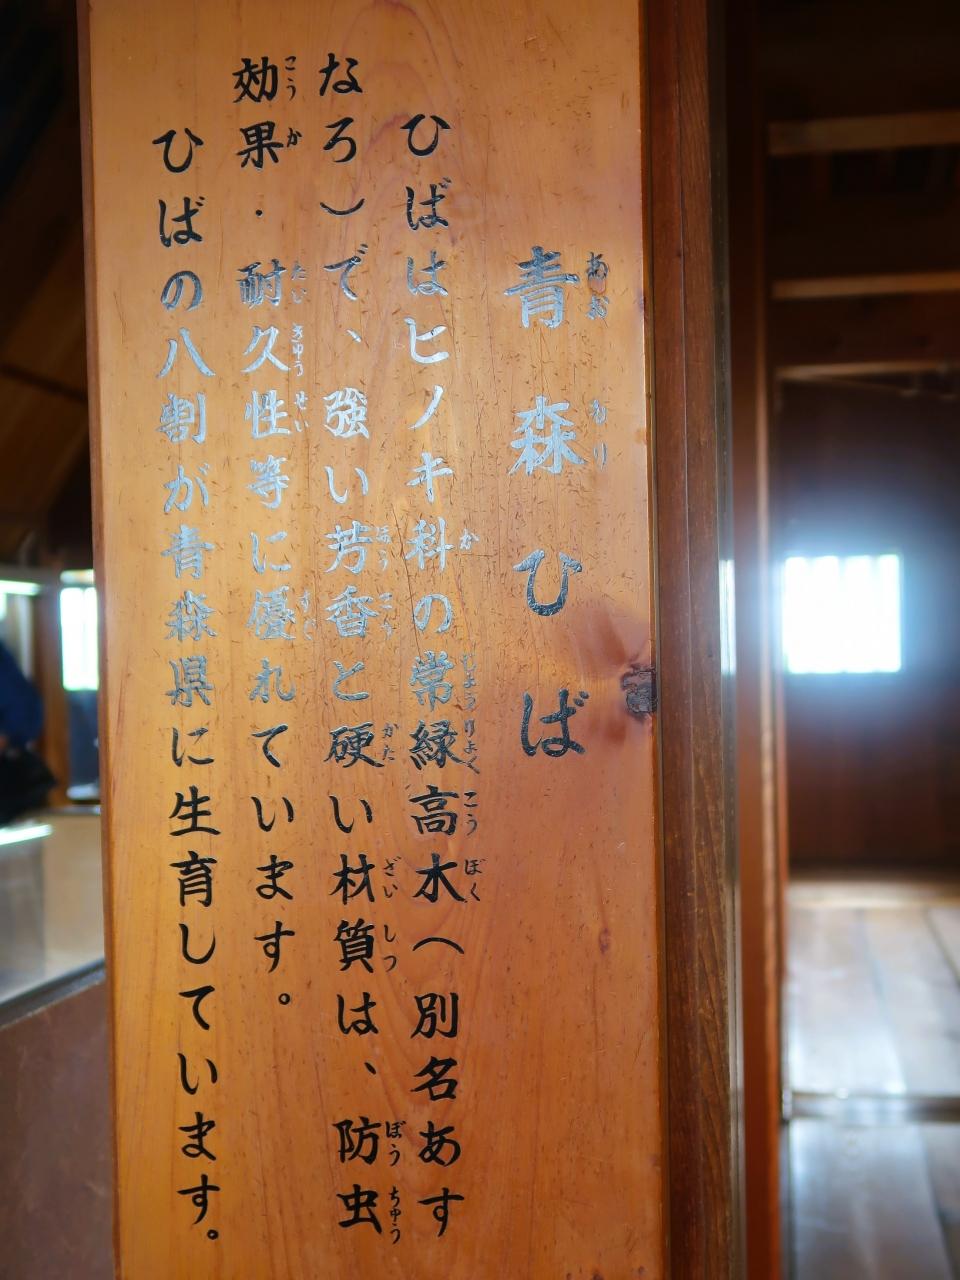 青森ひば
ひばはヒノキ科の常緑高木（別名あす
なろ）で、強い芳香と硬い材質は、防虫
効果・耐久性等に優れています。
ひばの八割が青森県に生育しています。